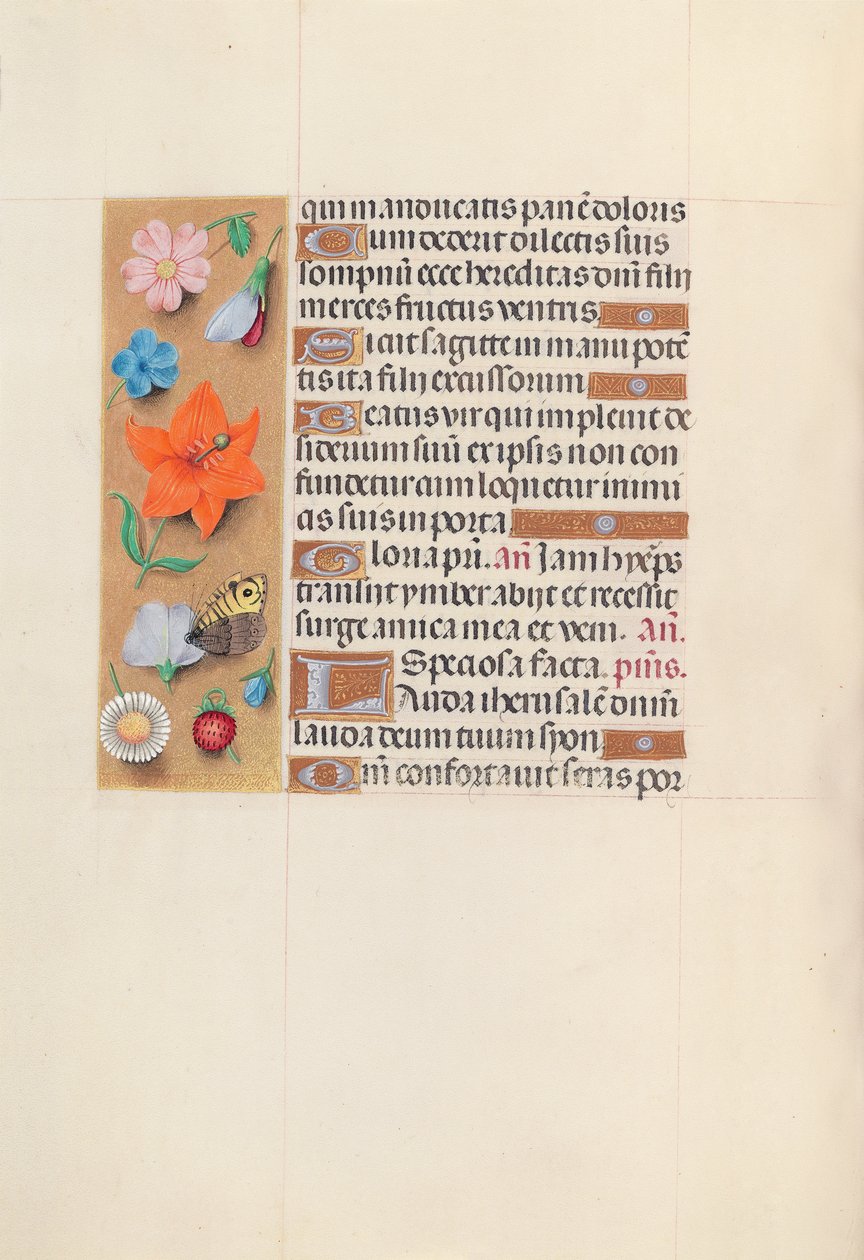 qui manducatis panē doloris
Cum dederit dilectis suis
sompnū ecce hereditas dnī filij
merces fructus ventris
Sicut sagitte in manu potē
tis ita filij excussorum
Beatus vir qui impleuit de
siderium suū ex ipsis non con
fundetur cum loquetur inimi
cis suis in porta
Gloria pr̄i. an̄ Jam hyēps
transijt ymber abijt et recessit
surge amica mea et veni. An̄.
Speciosa facta. psm̄s.
Lauda iherusalē dnm̄
lauda deum tuum syon
Qm̄ confortauit seras por